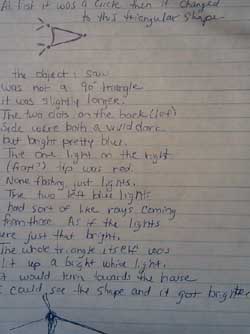 At fist it was a circle then it changed
to this triangular shape
the object I saw
was not a 90° triangle
it was slightly longer.
The two dots on the back (left)
side were both a vivid dark
but bright pretty blue.
The one light on the right
(front?) tip was red.
None flashing, just lights.
The two left blue lights
had sort of like rays coming
from those. As if the lights
were just that bright.
The whole triangle itself was
lit up a bright white light.
it would turn towards the house
I could see the shape and it got brighter